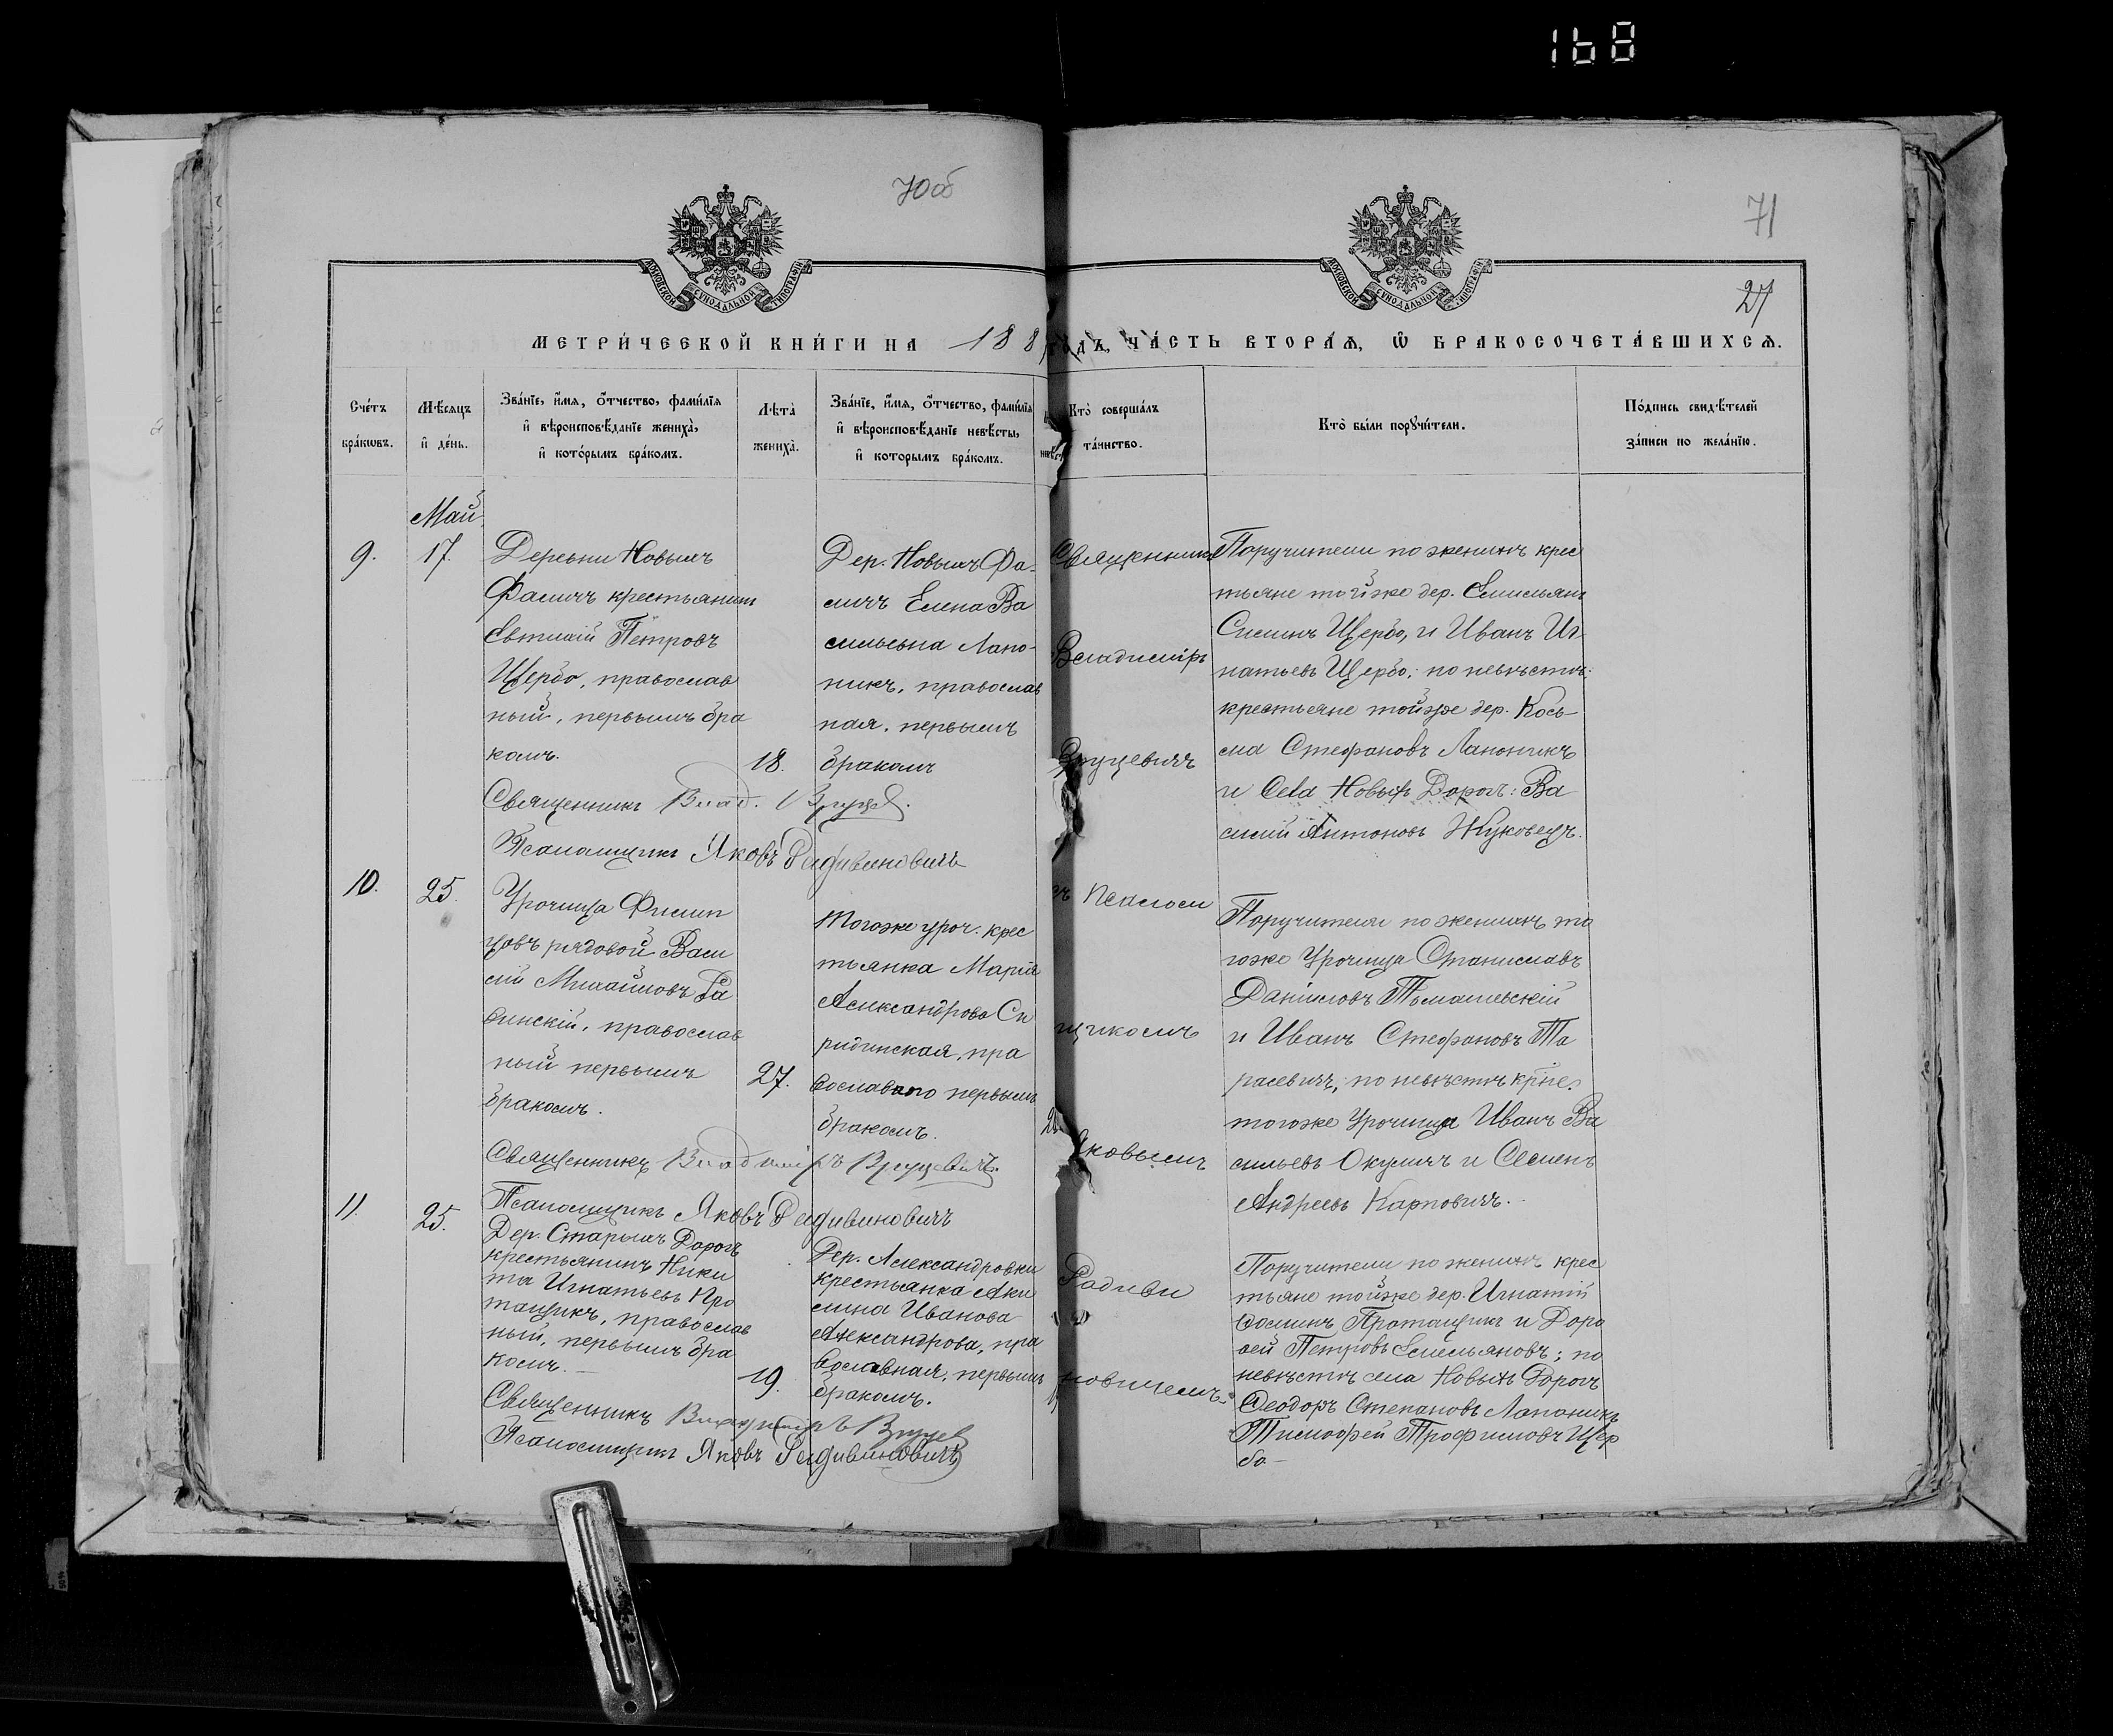 168
70об
71
27
МОСКОВСКОЙ СѴНОДАЛЬНОЙ ТИПОГРАФІИ
МОСКОВСКОЙ СѴНОДАЛЬНОЙ ТИПОГРАФІИ
МЕТРИ́ЧЕСКОЙ КНИ́ГИ НА 188 ГОДЪ, ЧА́СТЬ ВТОРА́Ѧ, Ѽ БРАКОСОЧЕТА́ВШИХСѦ.
Сче́тъ
бра́кѡвъ.
Мѣ́сяцъ
и҆ де́нь.
Зва́нїе, и҆́мѧ, ѻ҆́тчество, фами́лїѧ
и҆ вѣроисповѣ́данїе жениха̀,
и҆ кото́рымъ бра́комъ.
Лѣта̀
жениха̀.
Зва́нїе, и҆́мѧ, ѻ҆́тчество, фами́лїѧ
и҆ вѣроисповѣ́данїе невѣ́сты,
и҆ которымъ бра́комъ.
Кто̀ соверша́лъ
та́инство.
Кто̀ бы́ли порꙋчи́тели.
По́дпись свидѣ́телей
за́писи по жела́нїю.
Май
9.
17.
Деревни Новыхъ
Фаличъ крестьянинъ
Евтихій Петровъ
Щербо, православ
ный, первымъ бра
комъ.
18.
Дер. Новыхъ Фа-
личъ Елена Ва
сильевна Лапо-
никъ, православ
ная, первымъ
бракомъ
Священникъ
Владиміръ
Вруцевичъ
Поручители по женихѣ крес
тьяне тойже дер. Емильянъ
Щербо, и Иванъ Иг
натьевъ Щербо; по невѣстѣ:
крестьяне тойже дер. Кось-
ма Стефановъ Лапоникъ
и Села Новыхъ Дорогъ: Ва
силій Антоновъ Жуковецъ.
Священникъ Влад. Вруцев.
Псаломщикъ Яковъ Радивиновичъ
10.
25.
Урочища Филип
цовъ рядовой Васи
лій Михайловъ
православ
ный первымъ
бракомъ.
27.
Тогоже уроч. крес
тьянка Марія
Александрова Сп
ридинская, пра
вославнаго первымъ
бракомъ.
2
съ псалом
щикомъ
Яковымъ
Поручители по женихѣ то
гоже Урочища Станиславъ
Даниловъ
и Иванъ Стефановъ Та
расевичъ; по невѣстѣ крне.
тогоже Урочища Иванъ Ва
сильевъ Окуличъ и Семенъ
Андреевъ Карповичъ.
Священникъ Владиміръ Вруцевичъ.
Псаломщикъ Яковъ Радивиновичъ
11.
25.
Дер. Старыхъ Дорогъ
крестьянинъ Ники
та Игнатьевъ Про
тащикъ, православ
ный, первымъ бра
комъ.
19.
Дер. Александровки
крестьянка Аки
лина Иванова
Александрова, пра
вославная, первымъ
бракомъ.
Радиви
новичемъ.
Поручители по женихѣ крес
тьяне тойже дер. Игнатій
Ѳоминъ Протащикъ и Доро
ѳей Петровъ Емельяновъ; по
невѣстѣ села Новыхъ Дорогъ
Ѳеодоръ Степановъ Лапоникъ
Тимофей Трофимовъ Щер
ба
Священникъ Владиміръ Вруцев
Псаломщикъ Яковъ Радивиновичъ